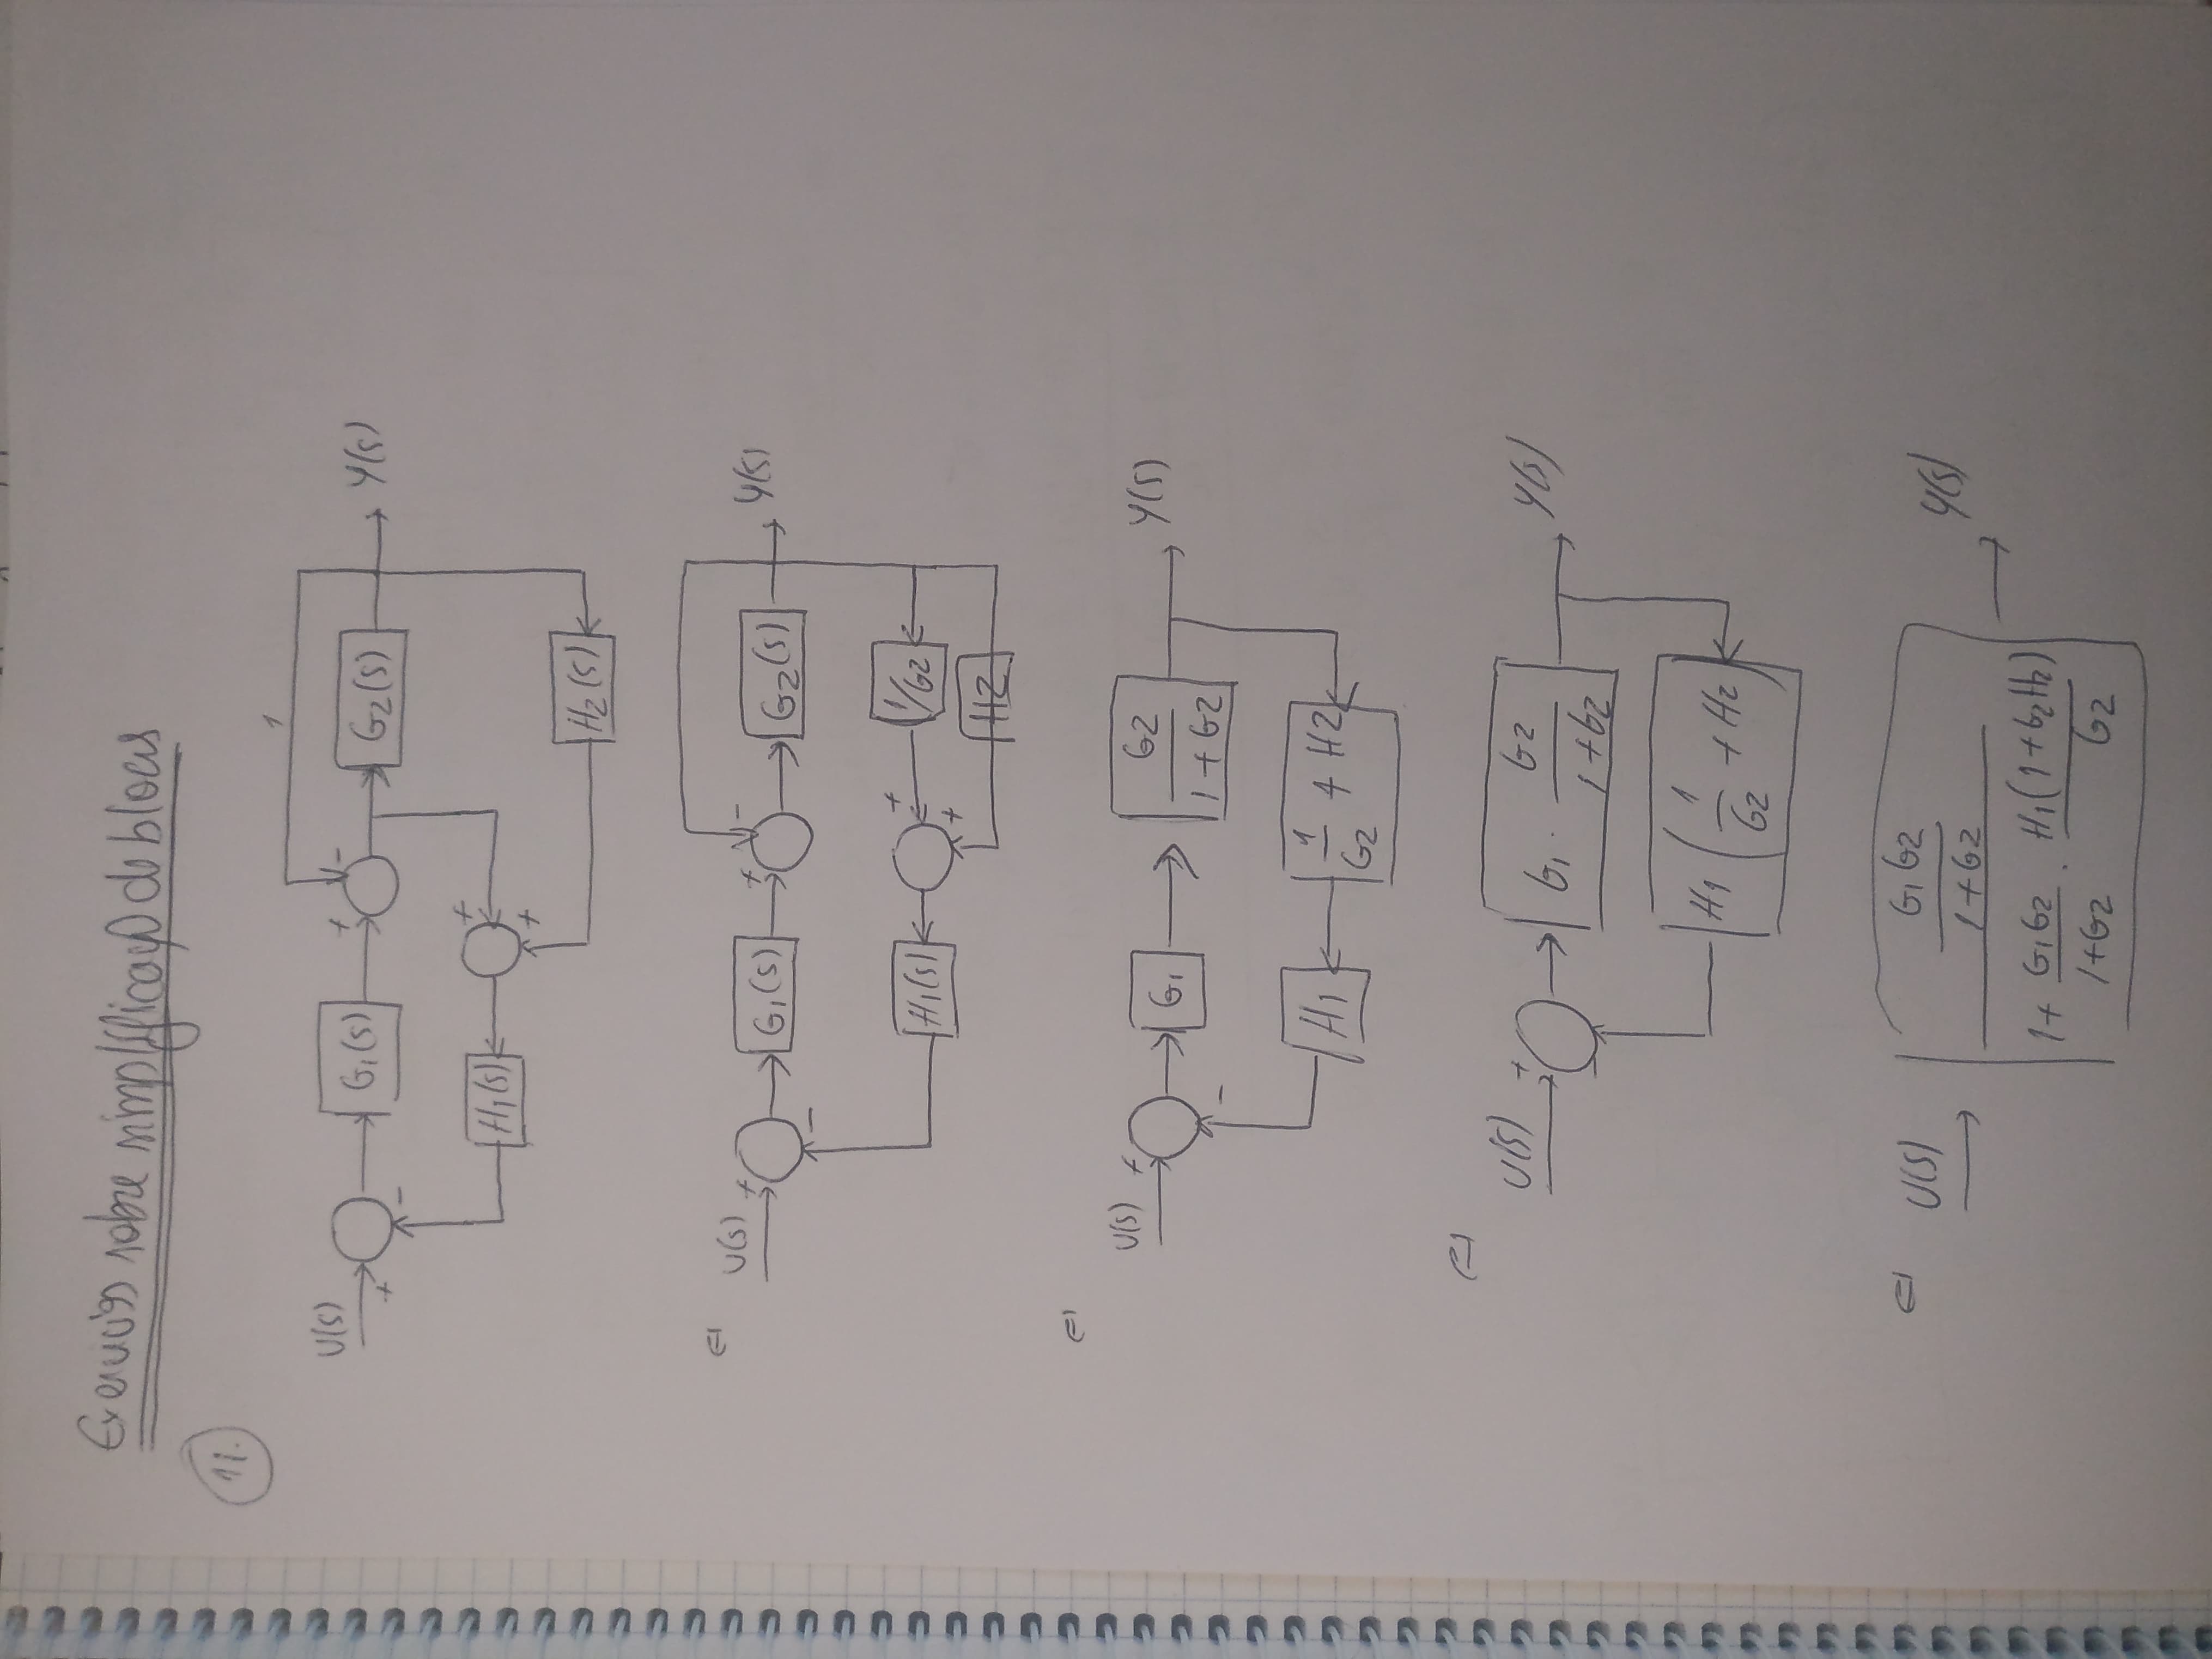 Exercícios sobre simplificação de blocos
11.
1
U(s) + - G1(s) + - G2(s) Y(s)
H1(s) + +
H2(s)
⇔ U(s) + - G1(s) + - G2(s) Y(s)
H1(s) + + 1/G2
H2
⇔
U(s) + - G1 G2/(1+G2) Y(s)
H1 1/G2 + H2
⇔
U(s) + - G1 · G2/(1+G2) Y(s)
H1 (1/G2 + H2)
⇔ U(s) G1G2 Y(s)
1+G2
1+ G1G2/(1+G2) · H1(1+G2H2)/G2